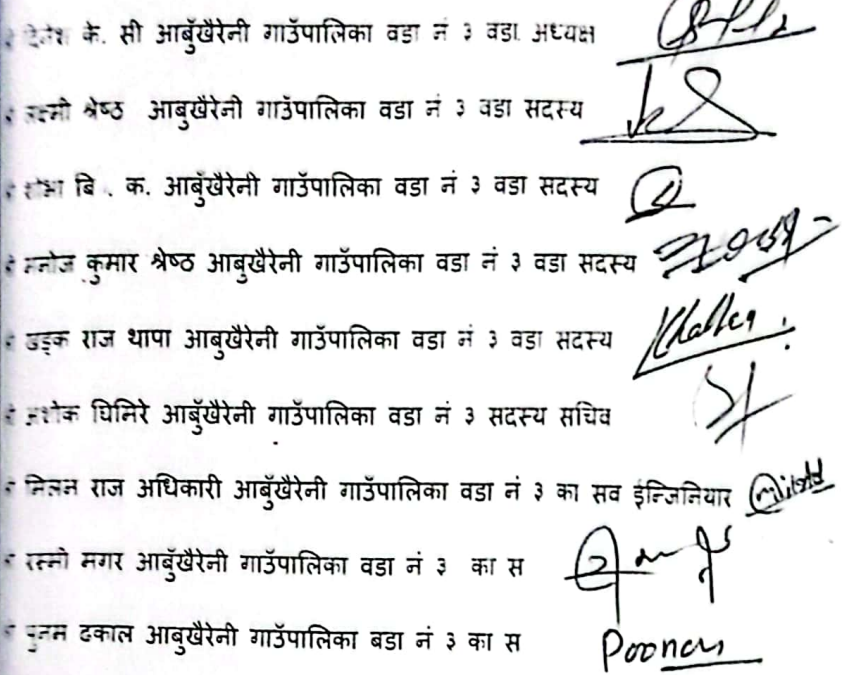 के. सी आबुँखैरेनी गाउँपालिका वडा नं ३ वडा अध्यक्ष
लक्ष्मी श्रेष्ठ आबुखैरेनी गाउँपालिका वडा नं ३ वडा सदस्य
बि . क. आबुँखैरेनी गाउँपालिका वडा नं ३ वडा सदस्य
मनोज कुमार श्रेष्ठ आबुखैरेनी गाउँपालिका वडा नं ३ वडा सदस्य
खड्क राज थापा आबुखैरेनी गाउँपालिका वडा नं ३ वडा सदस्य
अशोक घिमिरे आबुँखैरेनी गाउँपालिका वडा नं ३ सदस्य सचिव
मिलन राज अधिकारी आबुँखैरेनी गाउँपालिका वडा नं ३ का सव इन्जिनियार
मगर आबुँखैरेनी गाउँपालिका वडा नं ३ का स
पुनम ढकाल आबुखैरेनी गाउँपालिका बडा नं ३ का स Poonam